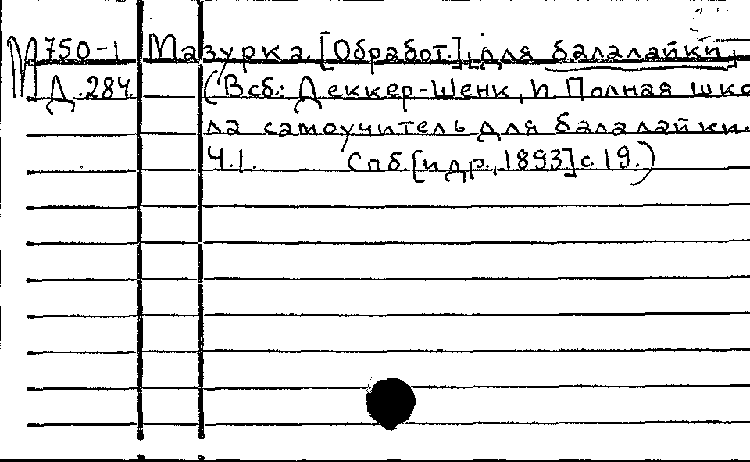 М 750-1 Мазурка [Обработ.] для балалайки
Д. 284 (В сб.: Деккер-Шенк, И Полная шко
ла самоучитель для балалайки.
Ч.1. Спб. [и др., 1893] с 19.)